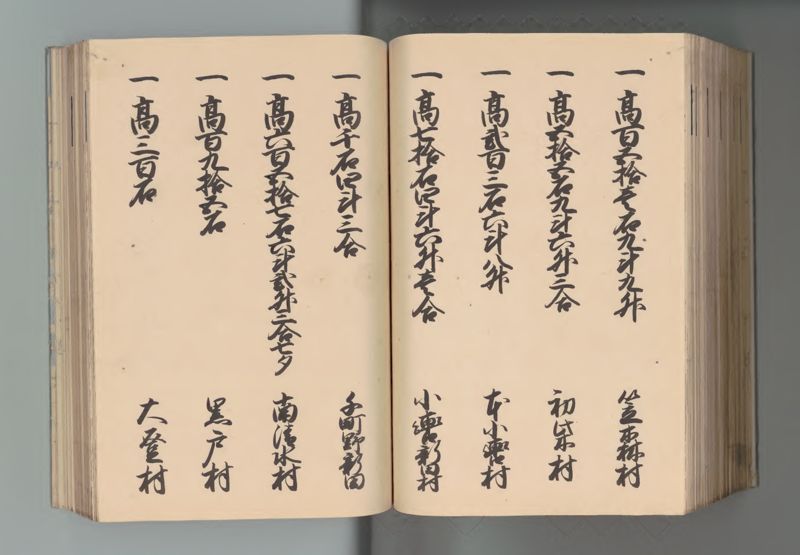 一 高百五拾壱石九斗九升 笠森村
一 高五拾五石九斗六升三合 初柴村
一 高弐百三石六斗八升 本小轡村
一 高七拾石四斗六升壱合 小轡新田村
一 高千石四斗三合 千町野新田
一 高六百五拾七石六斗弐升三合七夕 南清水村
一 高百九拾五石 黒戸村
一 高三百石 大登村